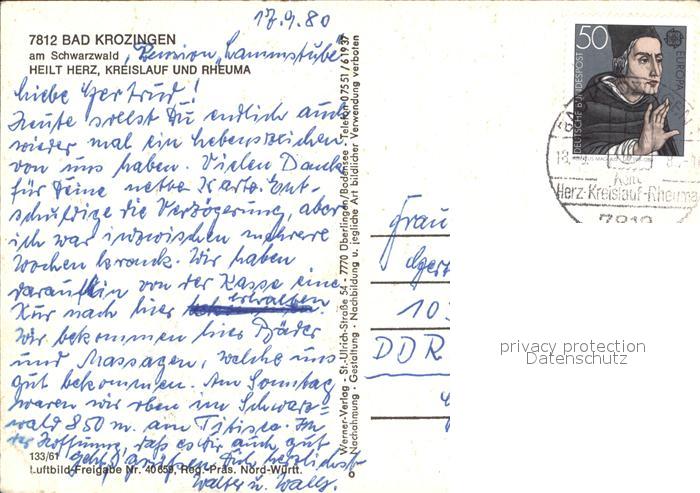 17.9.80
7812 BAD KROZINGEN
am Schwarzwald, Pension "Lammstube"
HEILT HERZ, KREISLAUF UND RHEUMA
Liebe Gertrud!
Heute sollst Du endlich auch
wieder mal ein Lebenszeichen
von uns haben. Vielen Dank
für Deine nette Karte. Ent-
schuldige die Verzögerung, aber
ich war inzwischen mehrere
Wochen krank. Wir haben
daraufhin von der Kasse eine
Kur nach hier erhalten.
Wir bekommen hier Bäder
und Massagen, welche uns
gut bekommen. Am Sonntag
waren wir oben im Schwarz=
wald 850 m. am Titisee. In
der Hoffnung, daß es Dir auch gut
geht grüßen Dich herzlichst
Walter u. Wally.
133/61
Luftbild-Freigabe Nr. 40859, Reg.-Präs. Nord-Württ.
Werner-Verlag - St.-Ulrich-Straße 54 - 7770 Überlingen/Bodensee - Telefon 07551/61937
Nachahmung - Gestaltung - Nachbildung u. jegliche Art bildlicher Verwendung verboten
50
DEUTSCHE BUNDESPOST
EUROPA
CEPT
Herz-Kreislauf-Rheuma
7812
Frau
10
DDR
privacy protection
Datenschutz